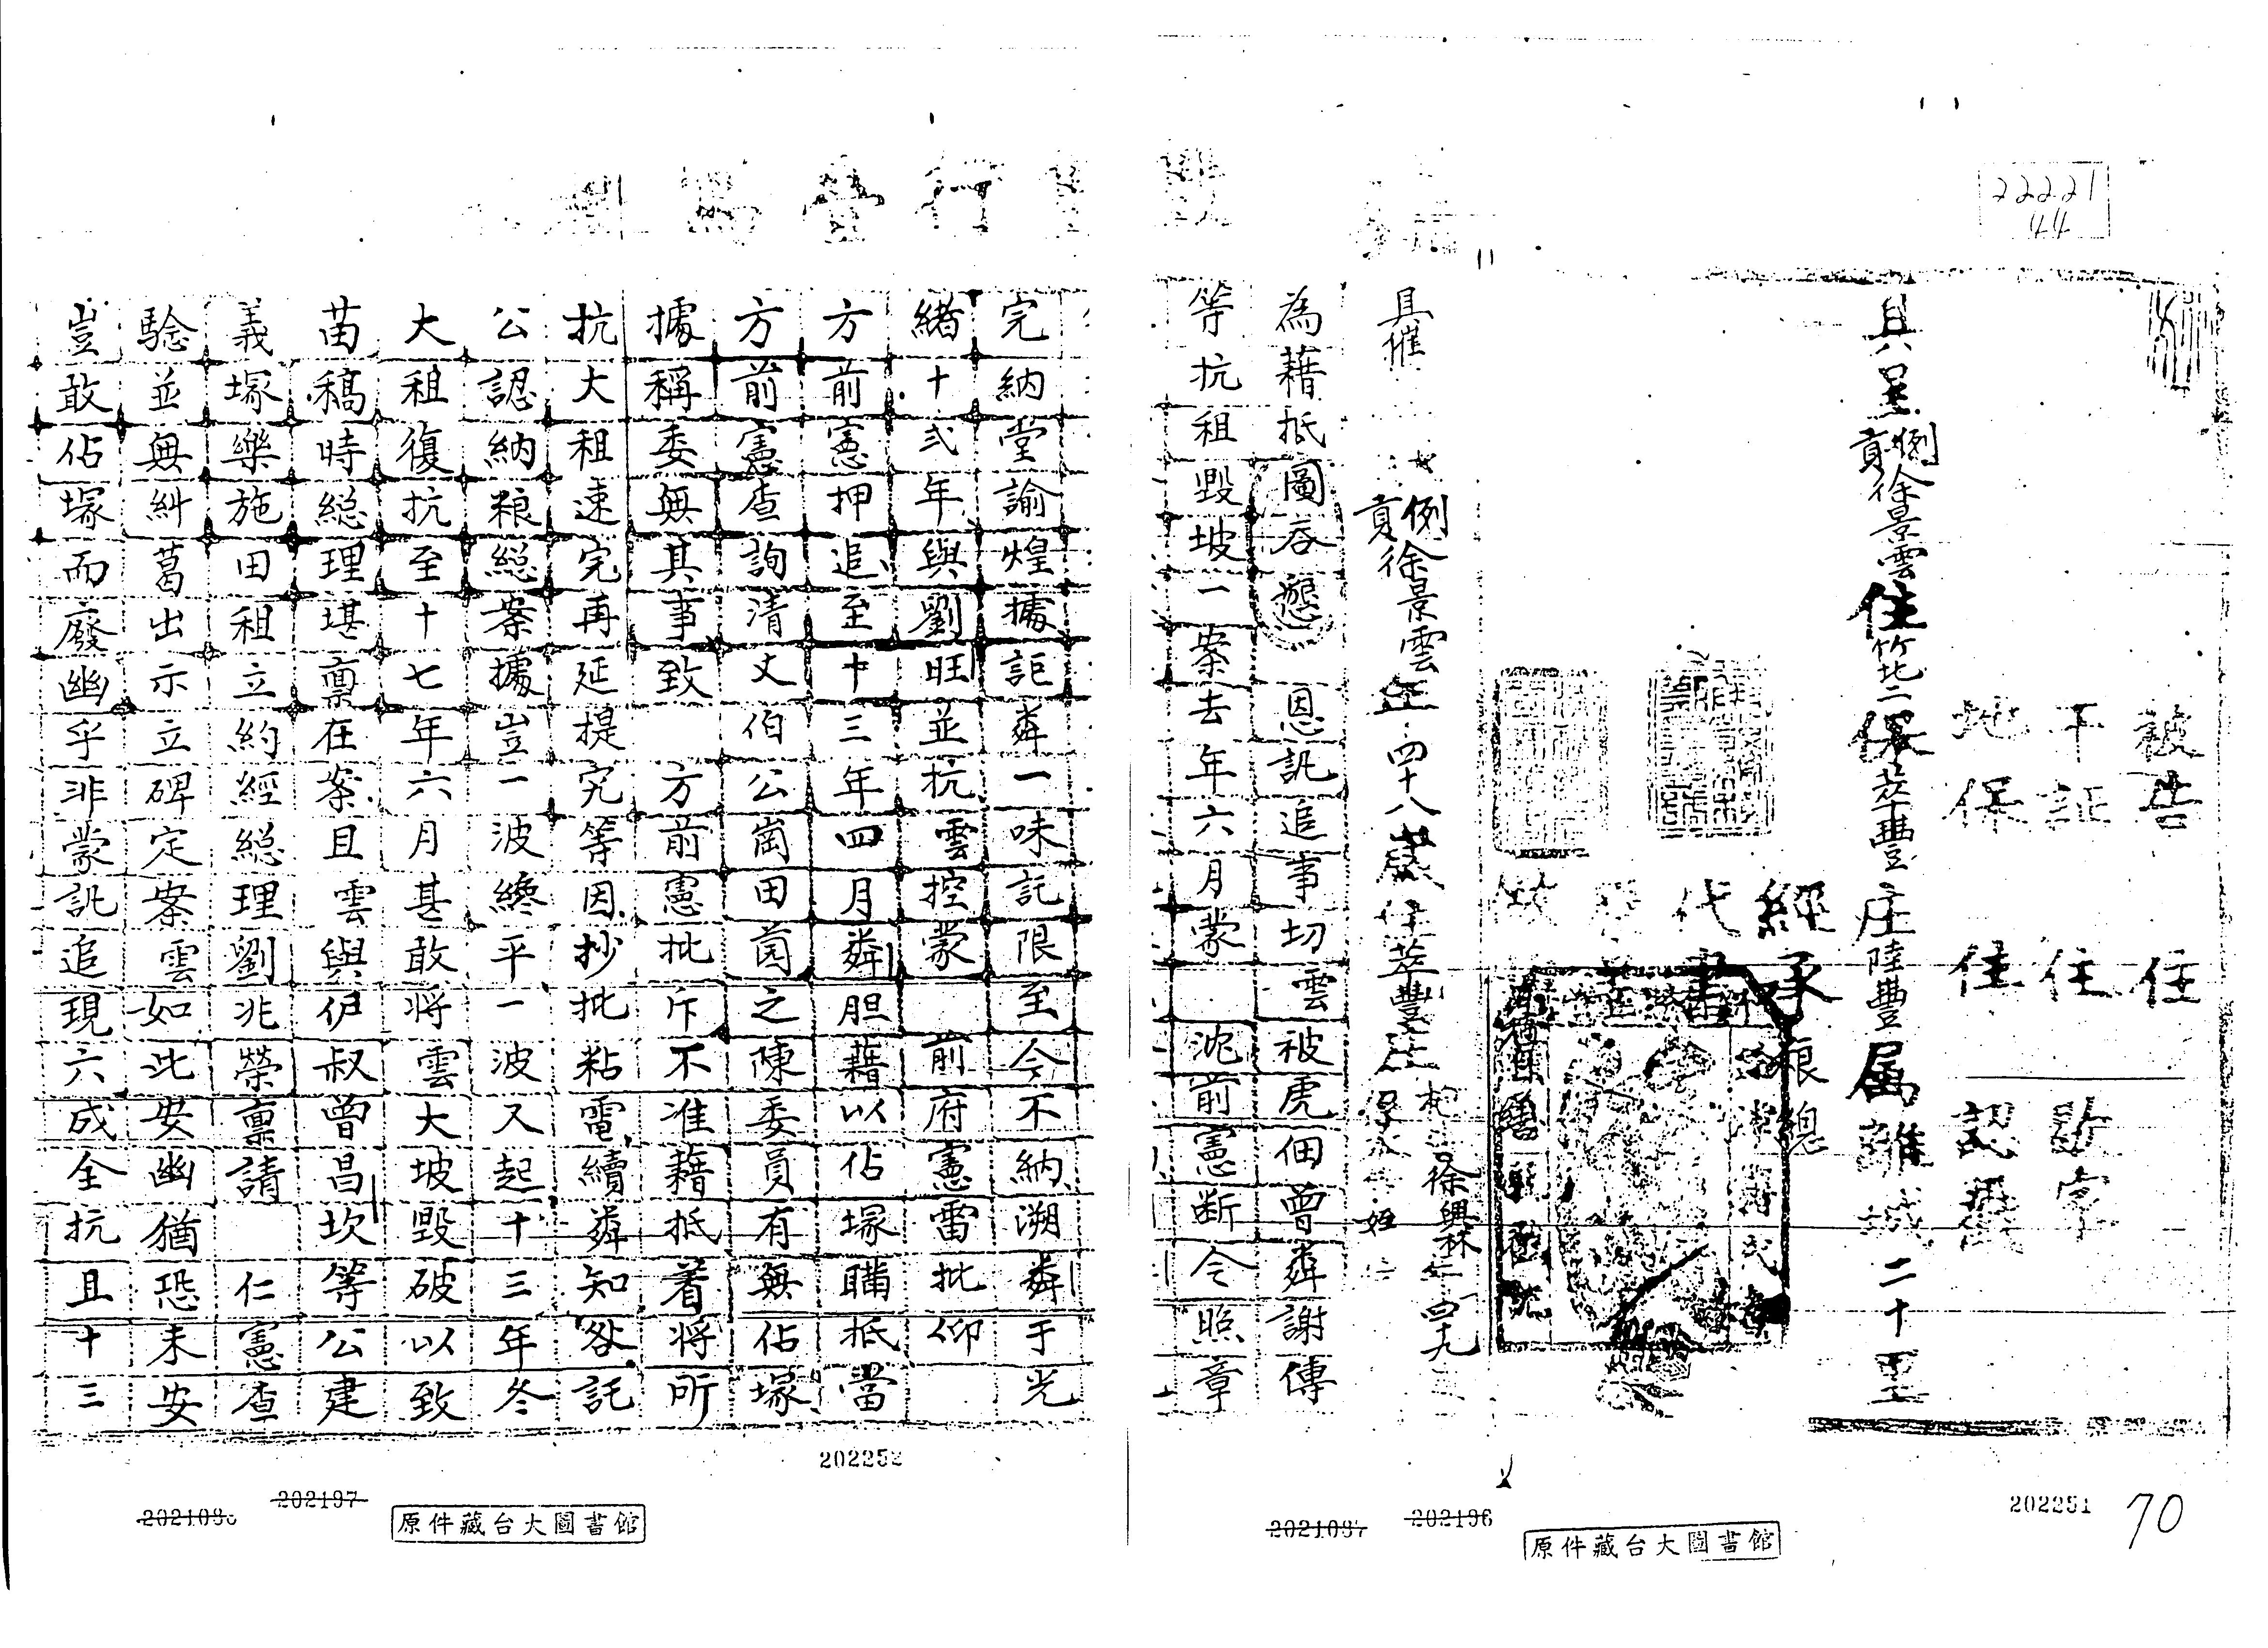 22221
44
被告 住
干証 住
地保 住
具呈例貢徐景雲住竹北二保萃豐庄陸豐属離城二十里
經承糧總
代書
具催
例貢徐景雲年四十八歲住萃豐庄
徐興林年四十九
為藉抵圖吞懇 恩訊追事切雲被虎佃曾粦謝傳
等抗租毀坡一案去年六月蒙 沈前憲断令照章
完納堂諭煌據詎粦一味託限至今不納溯粦于光
緒十弍年與劉旺並抗雲控蒙 前府憲雷批仰
方前憲押追至十三年四月粦胆藉以佔塚瞞抵當
方前憲查詢清丈伯公崗田茵之陳委員有無佔塚
據稱委無其事致 方前憲批斥不准藉抵着将所
抗大租速完再延提究等因抄批粘電續粦知咎託
公認納粮總案據豈一波纔平一波又起十三年冬
大租復抗至十七年六月甚敢将雲大坡毀破以致
苗稿時總理堪禀在案且雲與伊叔曾昌坎等公建
義塚樂施田租立約經總理劉兆榮禀請 仁憲查
騐並無糾葛出示立碑定案雲如此安幽猶恐未安
豈敢佔塚而廢幽乎非蒙訊追現六成全抗且十三
202252
202197
原件藏台大圖書館
202251
70
202196
原件藏台大圖書館